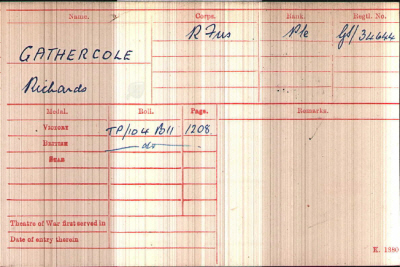 Name. Corps. Rank. Regtl. No.
GATHERCOLE R Fus Pte GS/34644
Richards
Medal. Roll. Page. Remarks.
VICTORY TP/104 B11 1208
BRITISH do
STAR
Theatre of War first served in
Date of entry therein
K. 1380